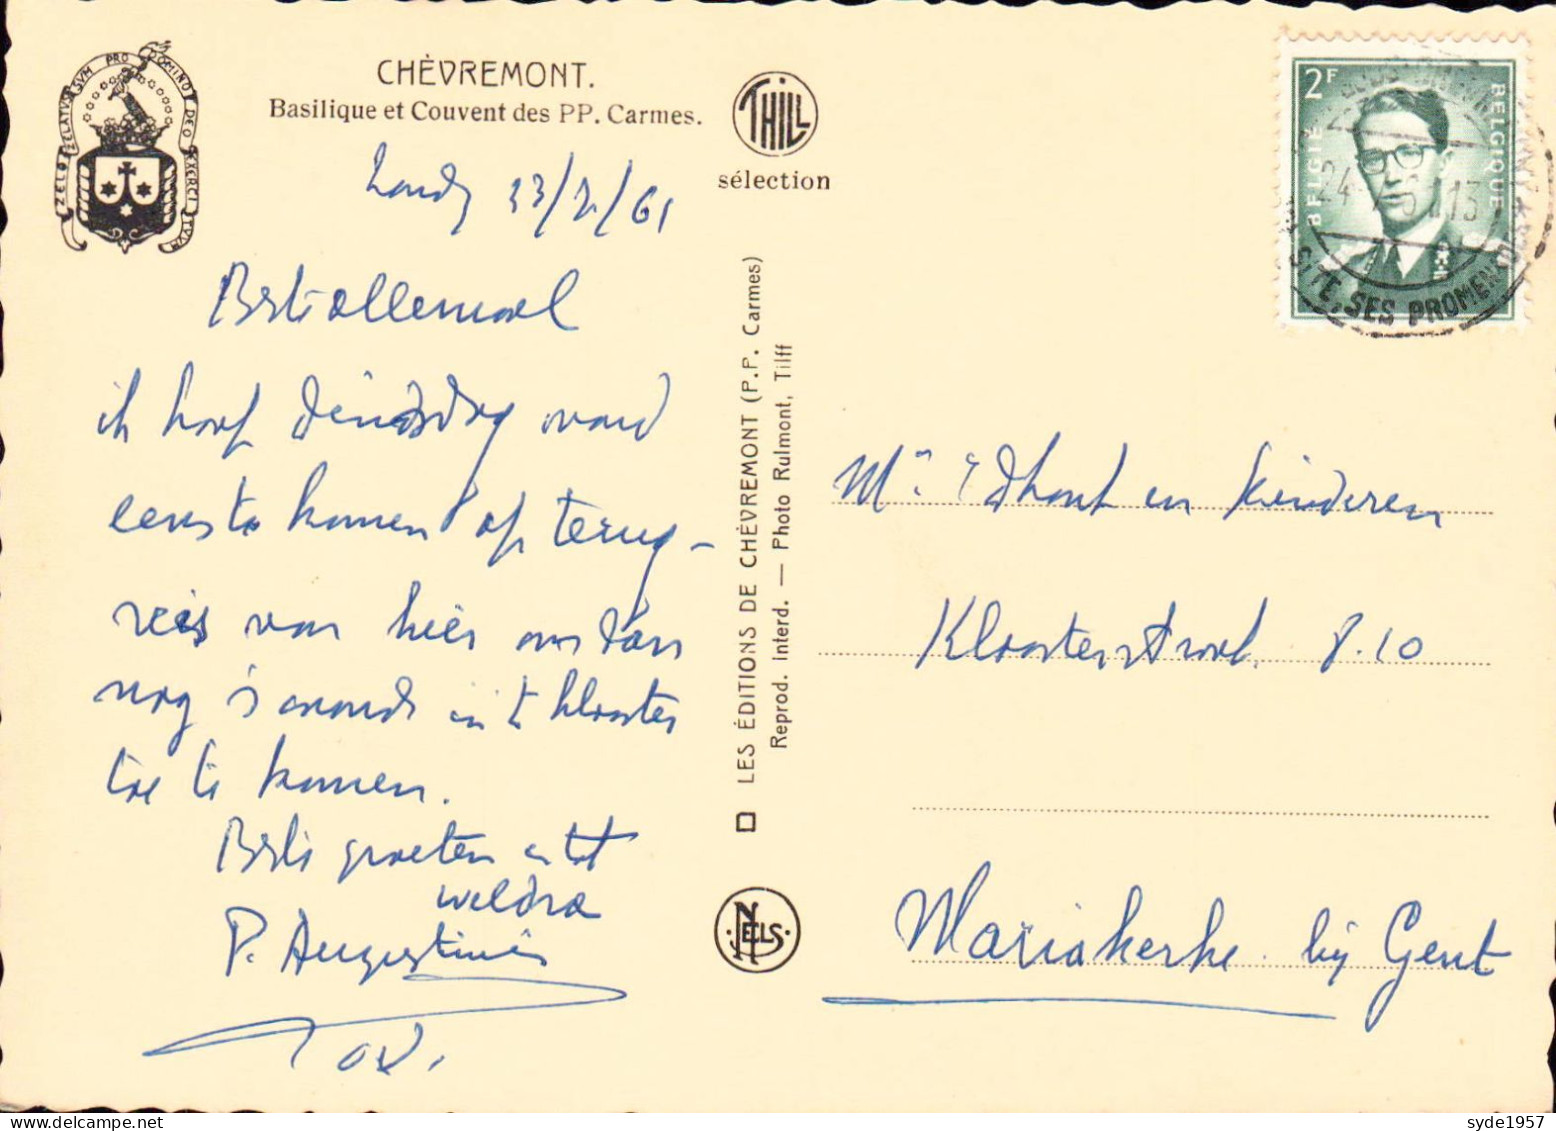 ZELO ZELATUS SUM PRO DOMINO DEO EXERCITUUM
CHÈVREMONT.
Basilique et Couvent des PP. Carmes.
THILL
sélection
23/2/61
Beste allemaal
ik hoop dinsdag avond
eens te komen op terug-
reis van hier om dan
nog 's avonds in 't klooster
toe te komen.
Beste groeten en tot
weldra
P. Augustinus
LES ÉDITIONS DE CHÈVREMONT (P.P. Carmes)
Reprod. interd. — Photo Rulmont, Tilff
NELS
2F
BELGIË
BELGIQUE
24
61 13
SITE, SES PROMENADES
Mr. E Dhont en kinderen
Kloosterstraat. 8.10
Mariakerke bij Gent
syde1957